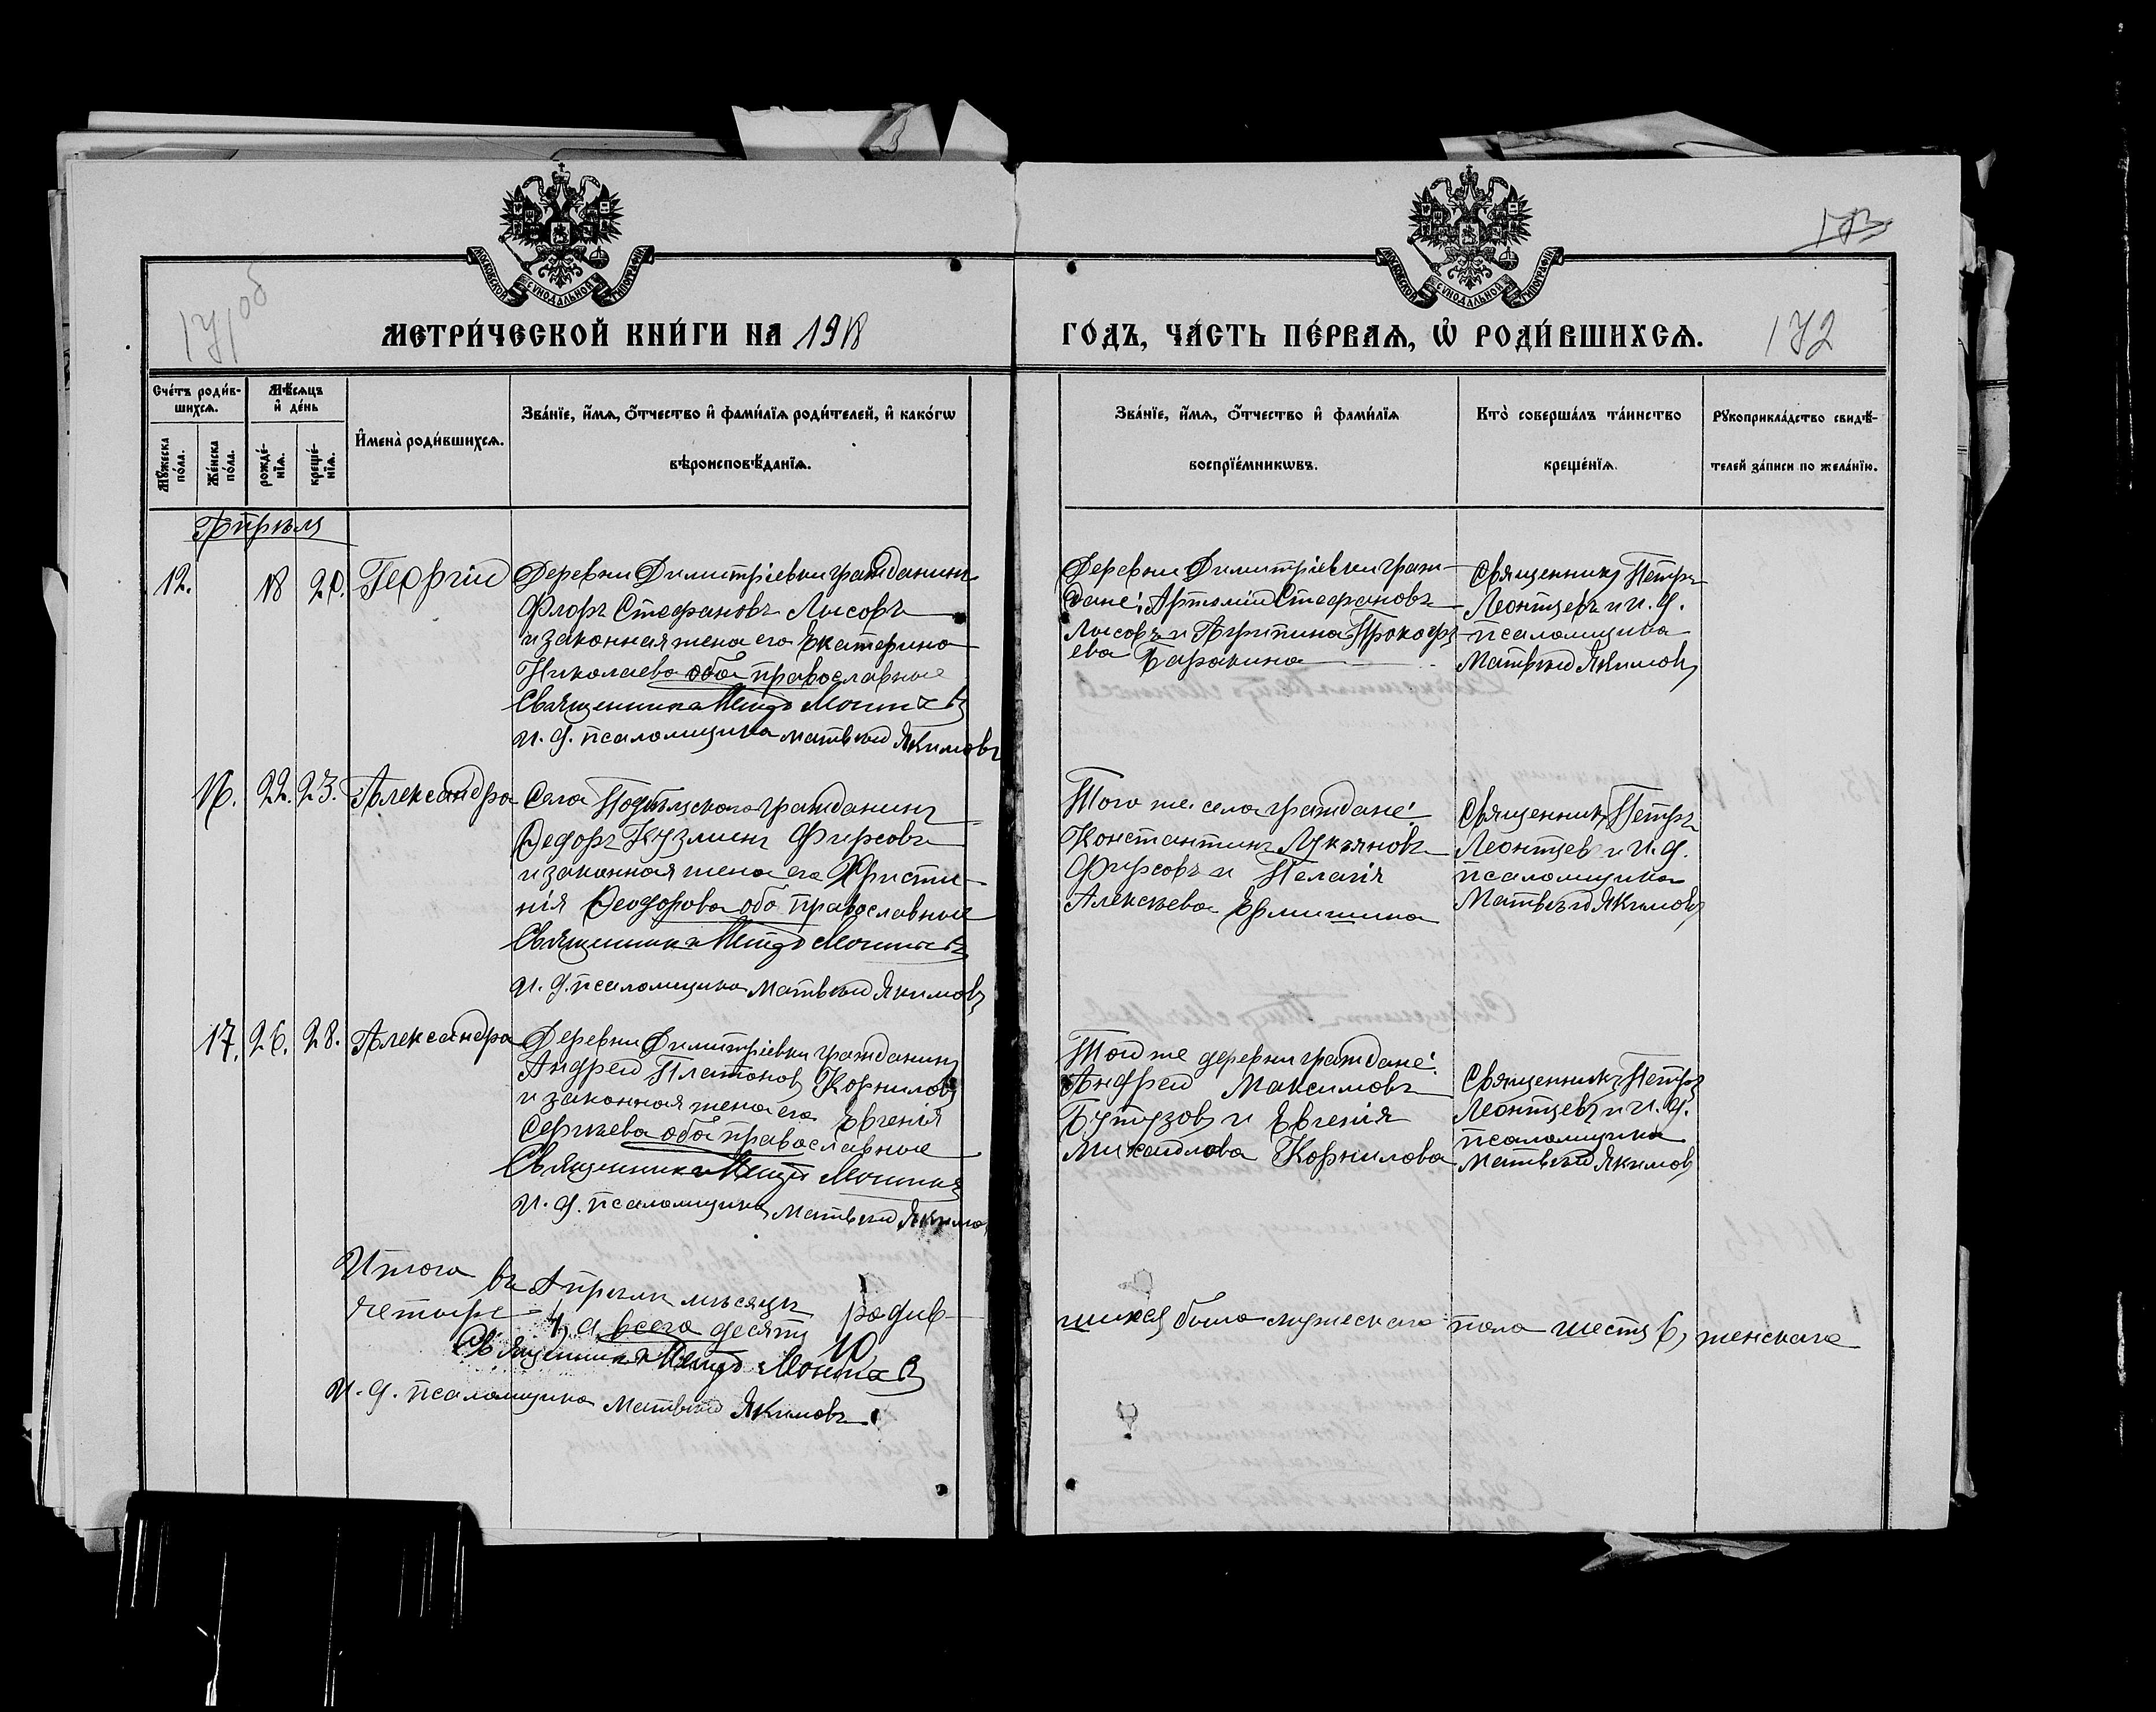 МОСКОВСКОЙ СѴНОДАЛЬНОЙ ТИПОГРАФІИ
МОСКОВСКОЙ СѴНОДАЛЬНОЙ ТИПОГРАФІИ
173
171об
МЕТРИ́ЧЕСКОЙ КНИ́ГИ НА 1918
ГО́ДЪ, ЧА́СТЬ ПЕ́РВАѦ, Ѡ҆ РОДИ́ВШИХСѦ.
172
Сче́тъ роди́в-
шихсѧ.
Мꙋ́жеска по́ла.
Же́нска по́ла.
Мѣ́сѧцъ и҆ де́нь
рожде́-
нїѧ.
креще́-
нїѧ.
И҆мена̀ роди́вшихсѧ.
Зва́нїе, и҆́мѧ, ѻ҆́тчество и҆ фами́лїѧ роди́телей, и҆ како́гѡ
вѣроисповѣ́данїѧ.
Зва́нїе, и҆́мѧ, ѻ҆́тчество и҆ фами́лїѧ
воспрїе́мникѡвъ.
Кто̀ соверша́лъ та́инство
креще́нїѧ.
Рꙋкоприкла́дство свидѣ́-
телей за́писи по жела́нїю.
Апрѣль
12. 18 20. Георгій
Деревни Димитріевки гражданинъ
Флоръ Стефановъ Лысовъ
и законная жена его Екатерина
Николаева оба православные
Священникъ Петръ Леонтьевъ
И. д. псаломщика Матвѣй Якимовъ
Деревни Димитріевки граж-
дане: Артемій Стефановъ
Лысовъ и Агрипина Прокофь
ева Баракина
Священникъ Петръ
Леонтьевъ и И. д.
псаломщика
Матвѣй Якимовъ
16. 22. 23. Александра
Села Подѣльскаго гражданинъ
Ѳедоръ Кузминъ Фирсовъ
и законная жена его Христи-
нія Ѳеодорова оба православные
Священникъ Петръ Леонтьевъ
И. д. псаломщика Матвѣй Якимовъ
Того же села граждане:
Константинъ Лукьяновъ
Фирсовъ и Пелагія
Алексѣева Ермишина
Священникъ Петръ
Леонтьевъ и И. д.
псаломщика
Матвѣй Якимовъ
17. 26. 28. Александра
Деревни Димитріевки гражданинъ
Андрей Платоновъ Корниловъ
и законная жена его Евгенія
Сергѣева оба православные
Священникъ Петръ Леонтьевъ
И. д. псаломщика Матвѣй Якимовъ
Той же деревни граждане:
Андрей Максимовъ
Бутузовъ и Евгенія
Михайлова Корнилова
Священникъ Петръ
Леонтьевъ и И. д.
псаломщика
Матвѣй Якимовъ
Итого въ Апрѣлѣ мѣсяцѣ родив-
шихся было мужескаго пола шесть 6, женскаго
четыре - 4, а всего десять 10
Священникъ Петръ Леонтьевъ
И. д. псаломщика Матвѣй Якимовъ